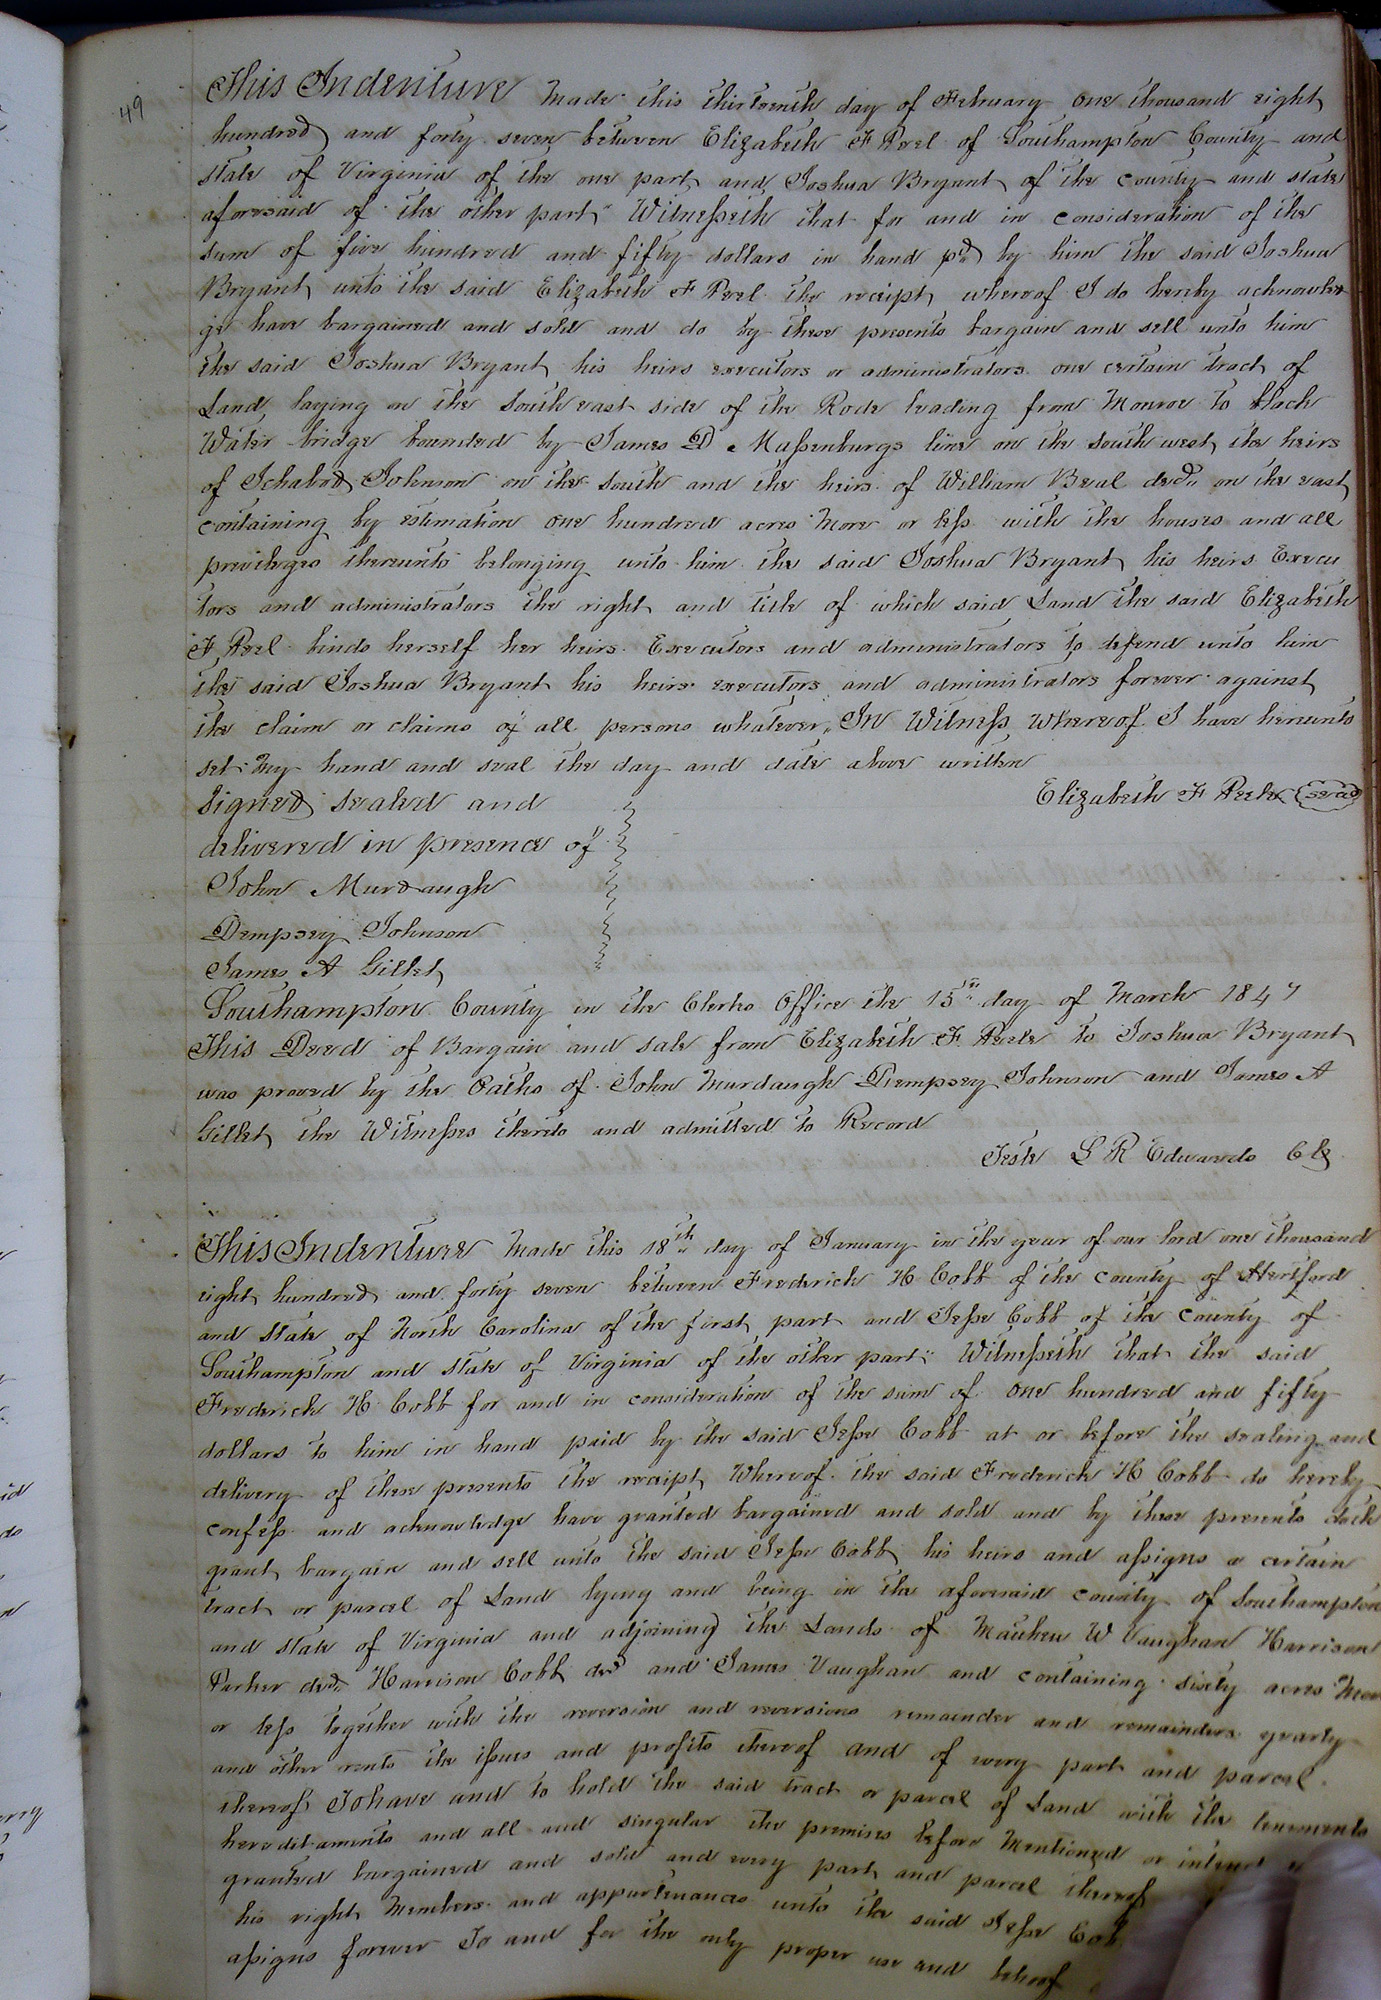 49
This Indenture Made this thirteenth day of February one thousand eight
hundred and forty seven between Elizabeth F Peel of Southampton County and
state of Virginia of the one part and Joshua Bryant of the county and state
aforesaid of the other part Witnesseth that for and in consideration of the
sum of five hundred and fifty dollars in hand pd by him the said Joshua
Bryant unto the said Elizabeth F Peel the receipt whereof I do hereby acknowled
ge have bargained and sold and do by these presents bargain and sell unto him
the said Joshua Bryant his heirs executors or administrators one certain tract of
Land laying on the South east side of the Rode leading from Monroe to black
Water bridge bounded by James D Massenburgs line on the south west the heirs
of Ichabod Johnson on the south and the heirs of William Beal decd on the east
containing by estimation one hundred acres More or less with the houses and all
previleges thereunto belonging unto him the said Joshua Bryant his heirs Execu
tors and administrators the right and title of which said Land the said Elizabeth
F Peel binds herself her heirs Executors and administrators to defend unto him
the said Joshua Bryant his heirs executors and administrators forever against
the claim or claims of all persons whatever, In Witness Whereof I have hereunto
set My hand and seal the day and date above written
Signed sealed and Elizabeth F Peele seal
delivered in presence of
John Murdaugh
Dempsey Johnson
James A Gillet
Southampton County in the Clerks Office the 15th day of March 1847
This Deed of Bargain and sale from Elizabeth F. Peele to Joshua Bryant
was proved by the Oaths of John Murdaugh Dempsey Johnson and James A
Gillet the Witnesses thereto and admitted to Record
Teste L R Edwards Clk
This Indenture Made this 18th day of January in the year of our lord one thousand
eight hundred and forty seven between Frederick H Cobb of the county of Hertford
and State of North Carolina of the first part and Jesse Cobb of the County of
Southampton and state of Virginia of the other part Witnesseth that the said
Frederick H Cobb for and in consideration of the sum of one hundred and fifty
dollars to him in hand paid by the said Jesse Cobb at or before the sealing and
delivery of these presents the receipt Whereof the said Frederick H Cobb do hereby
confess and acknowledge have granted bargained and sold and by these presents doth
grant bargain and sell unto the said Jesse Cobb his heirs and assigns a certain
tract or parcel of Land lying and being in the aforesaid county of Southampton
and state of Virginia and adjoining the Lands of Mathew W Vaughan Harrison
Parker decd Harrison Cobb decd and James Vaughan and containing sixty acres More
or less together with the reversion and reversions remainder and remainders yearly
and other rents the issues and profits thereof and of every part and parcel
thereof To have and to hold the said tract or parcel of Land with the tenements
hereditaments and all and singular the premises before Mentioned or
granted bargained and sold and every part and parcel thereof
his right Members and appurtenances unto the said Jesse
assigns forever To and for the only proper use and behoof